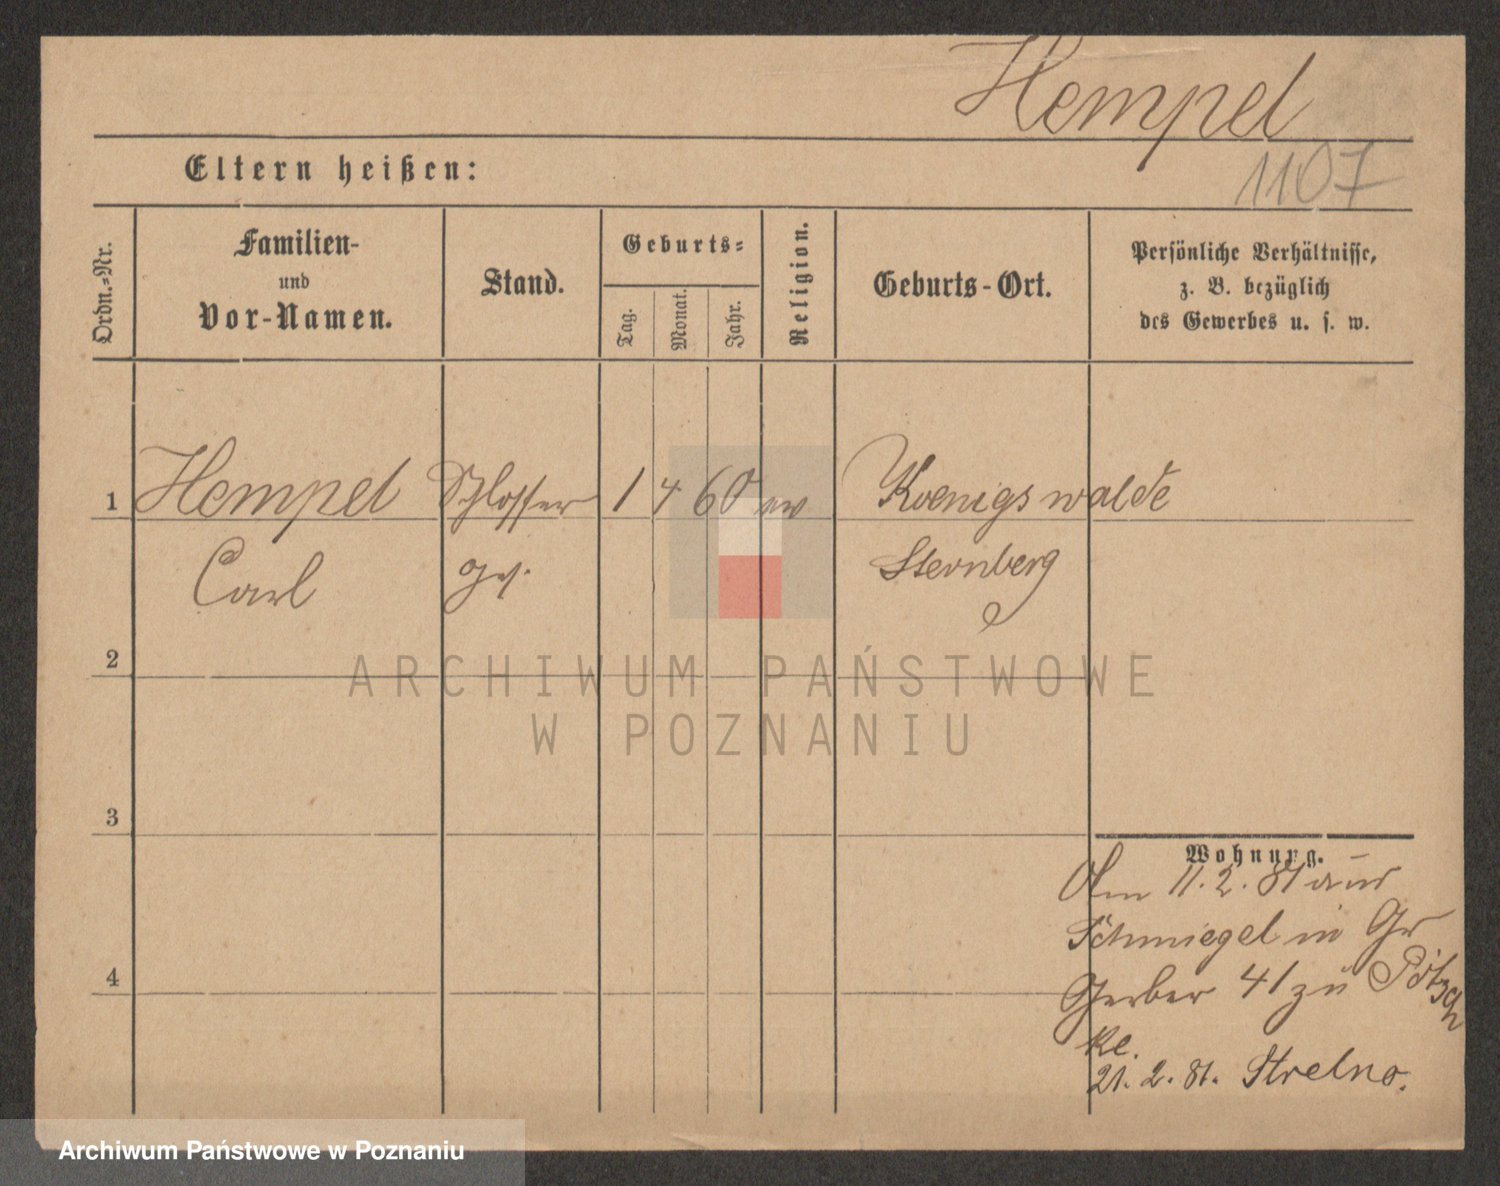 Hempel
1107
Eltern heißen:
Ordn.-Nr.
Familien-
und
Vor-Namen.
Stand.
Geburts-
Tag.
Monat.
Jahr.
Religion.
Geburts-Ort.
Persönliche Verhältnisse,
z. B. bezüglich
des Gewerbes u. s. w.
1 Hempel Schlosser 1 4 60 ev Koenigswalde
Carl Sternberg
2
ARCHIWUM PAŃSTWOWE
W POZNANIU
3
Wohnung.
Am 11. 2. 81 aus
Schmiegel in Gr
4
Gerber 41 zu
21. 2. 81. Strelno.
Archiwum Państwowe w Poznaniu